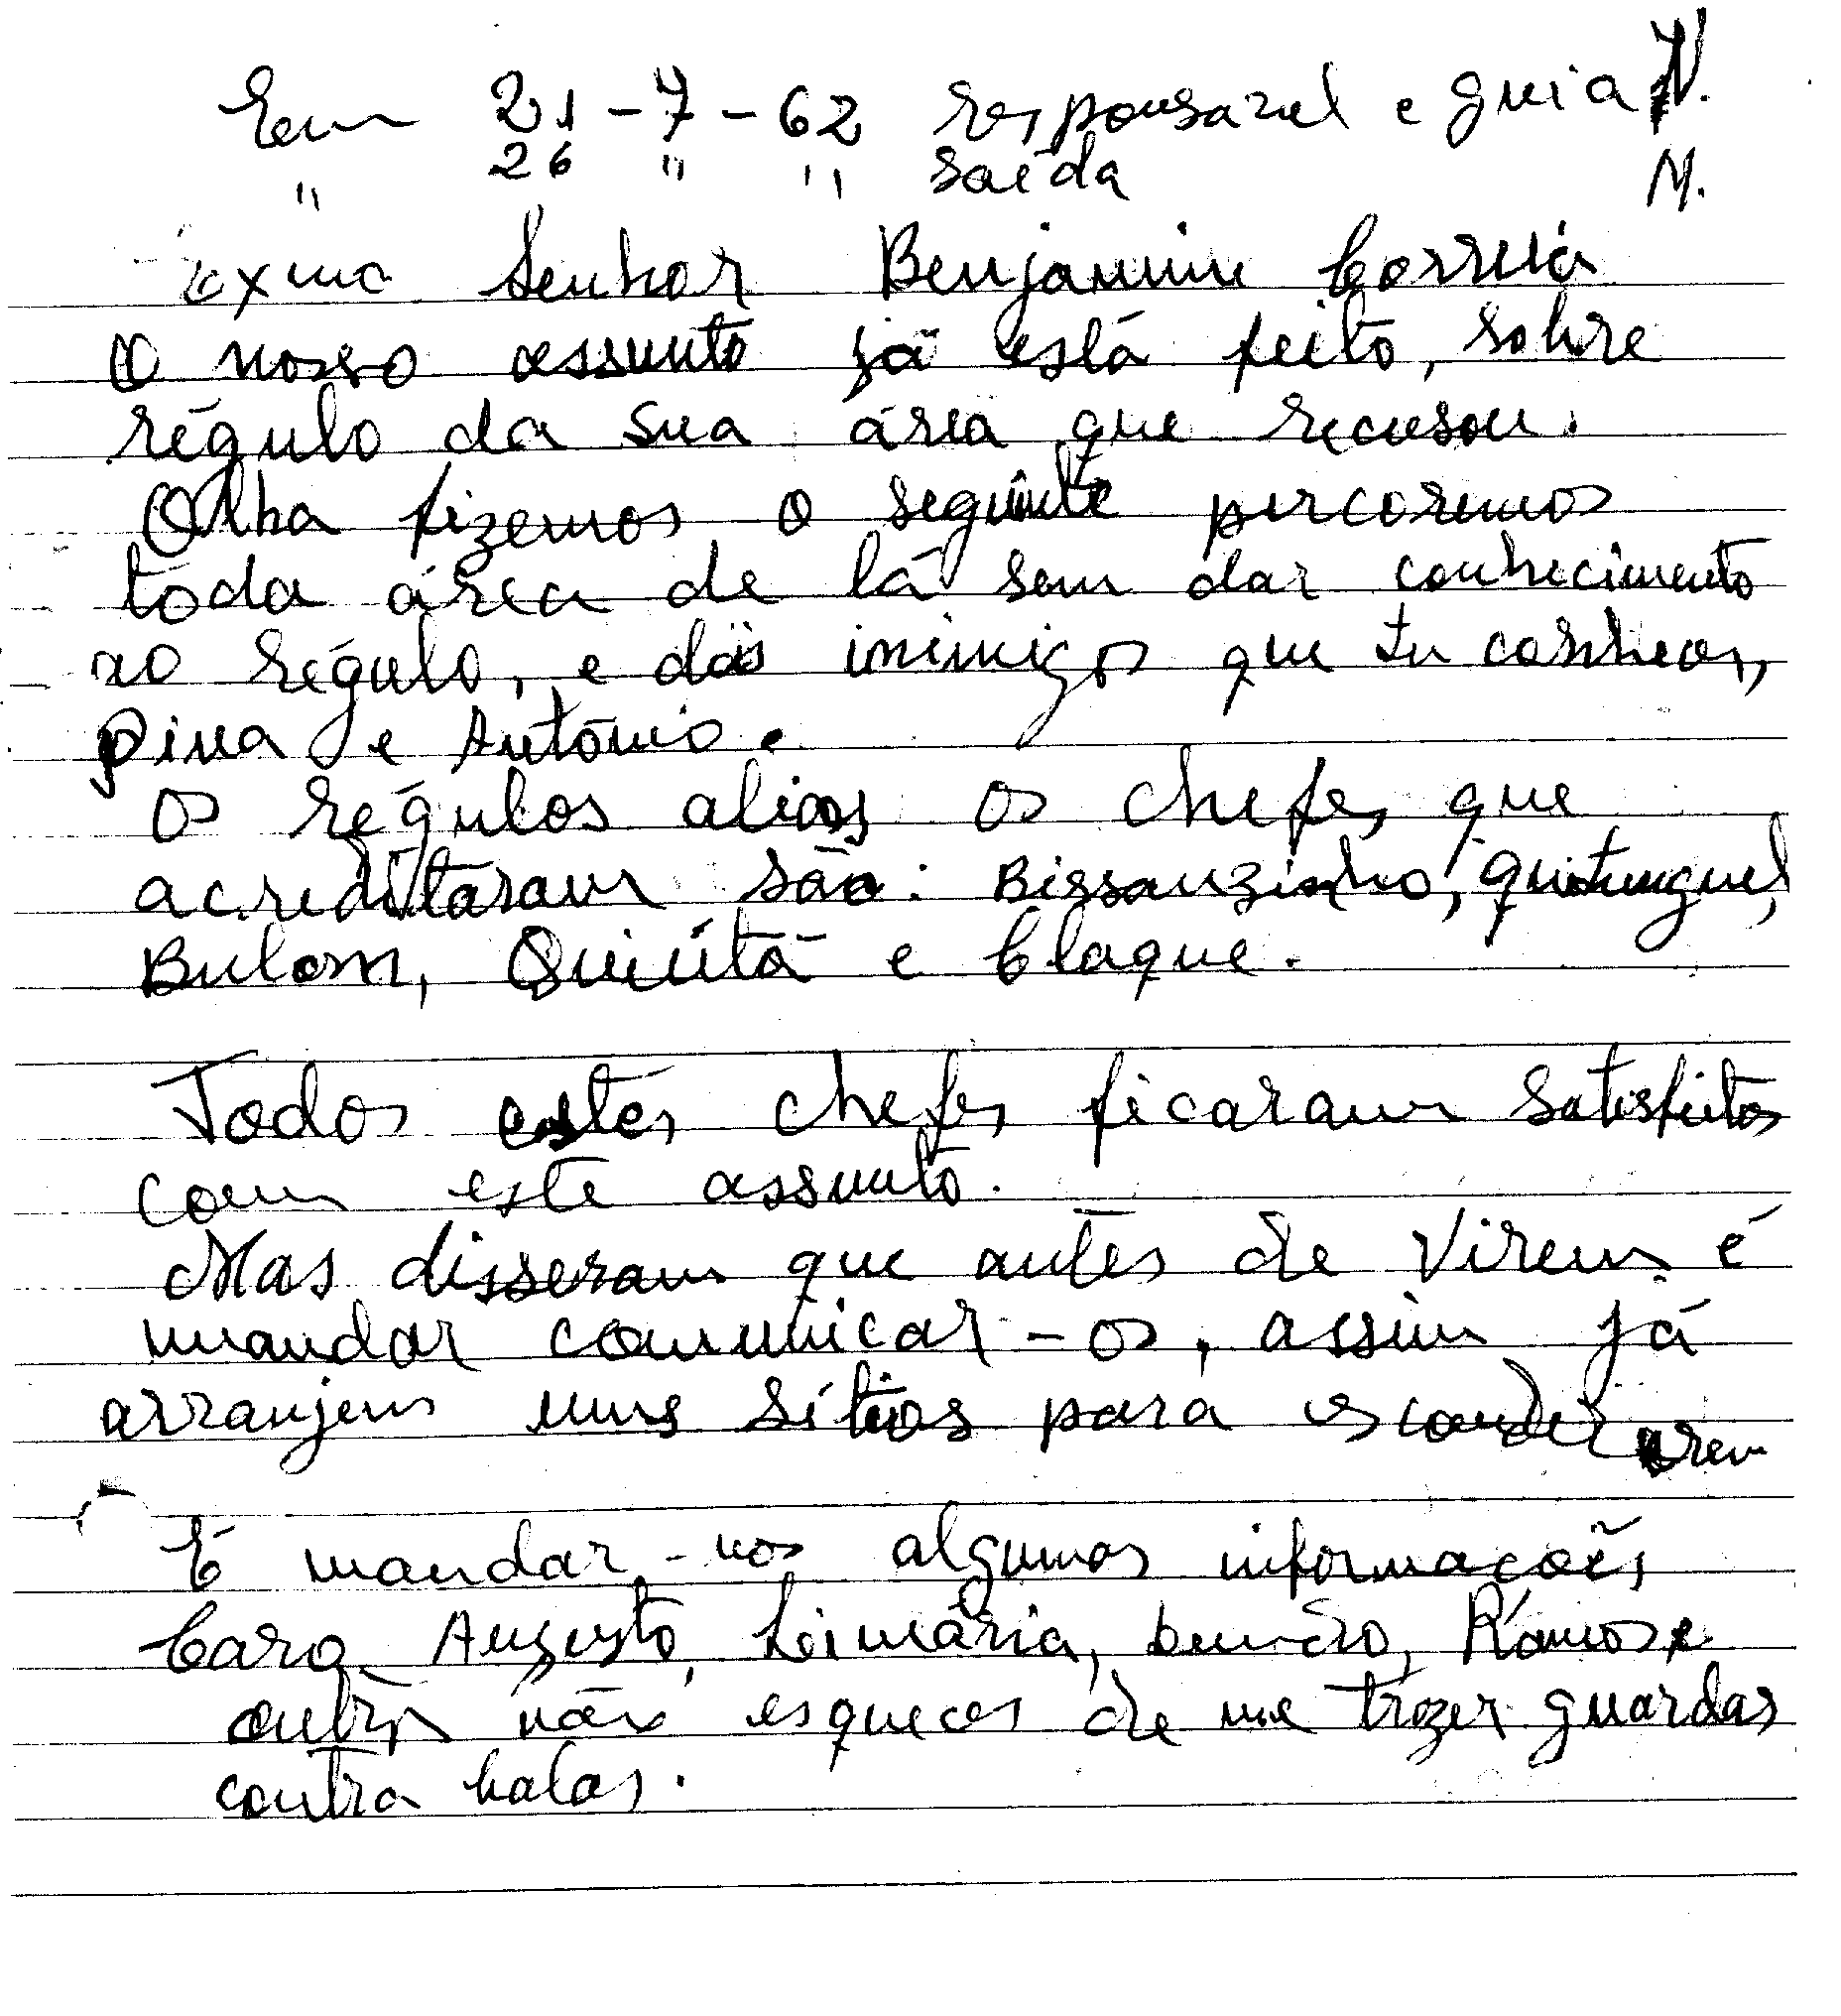 Em 21-7-62 responsavel e guia N.
" 26 " " saida N.
Exmo Senhor Benjamim Correia
O nosso assunto já está feito, sobre
régulo da sua área que recusou.
Olha fizemos o seguinte percoremos
toda área de lá sem dar conhecimento
ao régulo, e dois inimigos que tu conheces,
pina e António.
Os régulos alias os chefes que
acreditaram são: Bissauzinho, quitunguel,
Bulom, Quiuta e Claque.
Todos estes chefes ficaram satisfeitos
com este assunto.
Mas disseram que antes de virem é
mandar comunicar-os, assim já
arranjem uns sítios para esconderem
É mandar-nos algumas informações
Caro Augusto, Leimária, Ramos e
outros não esqueces de me trazer guardas
contra balas.